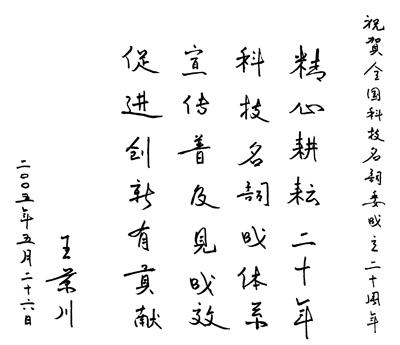 祝贺全国科技名词委成立二十周年
精心耕耘二十年
科技名词成体系
宣传普及见成效
促进创新有贡献
王景川
二〇〇五年五月二十六日